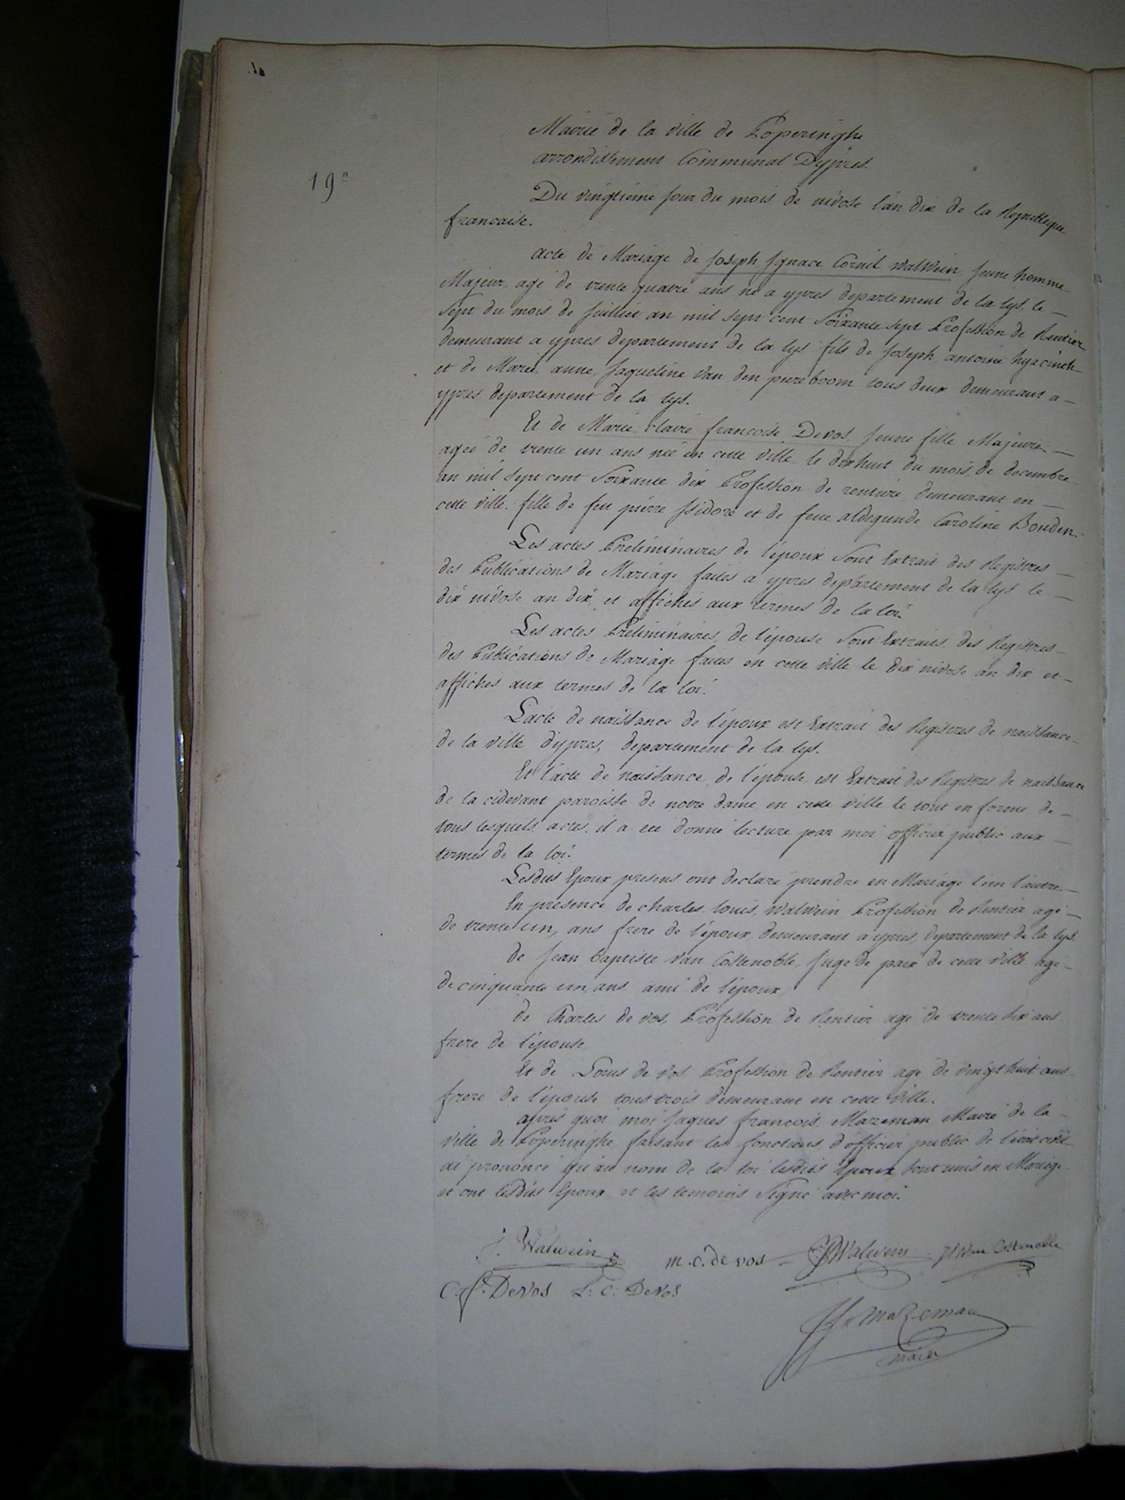 19
Mairie de la ville de Poperinghe
arrondissement Communal Dypres.
Du vingtieme jour du mois de nivose l'an dix de la Republique
francaise.
acte de Mariage de Joseph Ignace Cornil Walwein jeune homme
Majeur agé de trente quatre ans né a ypres departement de la lys le
Sept du mois de Juillet an mil sept cent Soixante Sept Profession de Rentier
demeurant a ypres departement de la lys fils de Joseph antoine hyacinth
et de Marie anne Jaqueline Van den peereboom tous deux demeurant a
ypres departement de la lys.
Et de Marie Claire francoise Devos Jeune fille Majeure
agée de trente un ans née en cette ville le dixhuit du mois de decembre
an mil sept cent Soixante dix Profession de rentiere demeurant en
cette ville fille de feu pierre Isidore et de feue aldegunde Caroline Bouden
Les actes Preliminaires de l'époux sont Extrait des Registres
des Publications de Mariage faites a ypres departement de la lys le
dix nivose an dix, et affichés aux termes de la loi.
Les actes Preliminaires de l'épouse sont Extraits des Registres
des Publications de Mariage faites en cette ville le dix nivose an dix et
affichés aux termes de la loi.
L'acte de naissance de l'époux est Extrait des Registres de naissance
de la ville d'ypres, departement de la lys.
Et l'acte de naissance de l'épouse est Extrait des Registres de naissance
de la cidevant paroisse de notre dame en cette ville le tout en forme de
tous lesquels actes il a été donné lecture par moi officier public aux
termes de la loi.
Lesdits Epoux presens ont declaré prendre en Mariage l'un l'autre
En presence de charles louis Walwein Profession de Rentier agé
de trente un ans frere de l'époux demeurant a ypres departement de la lys
de Jean baptiste Van Costenoble Juge de paix de cette ville agé
de cinquante un ans ami de l'époux
de Charles de vos Profession de Rentier agé de trente six ans
frere de l'épouse
Et de Louis de vos Profession de Rentier agé de vingt huit ans
frere de l'épouse tous trois demeurant en cette Ville.
après quoi moi Jaques francois Mazeman Maire de la
ville de Poperinghe faisant les fonctions d'officier public de l'état civil
ai prononcé qu'au nom de la loi lesdits Epoux sont unis en Mariage
et ont lesdits Epoux et les temoins Signé avec moi.
J. Walwein m.c. de vos Walwein Van Costenoble
C. Devos L. C. Devos
Mazeman
maire